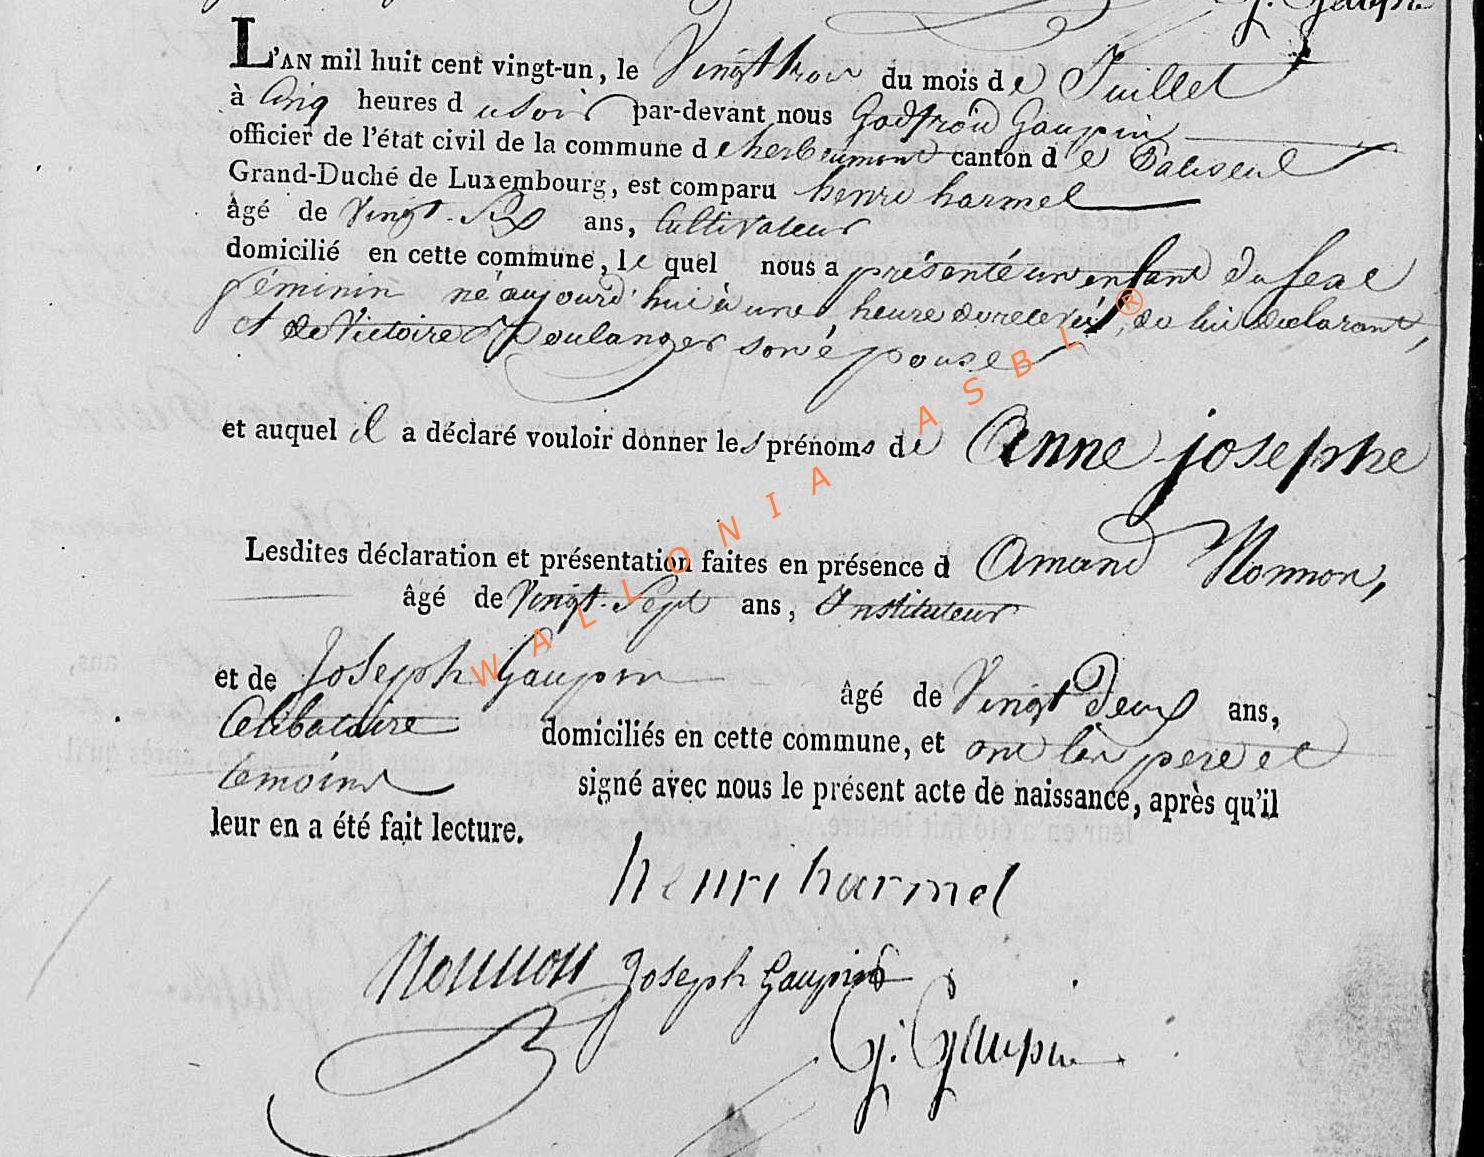 G. Gaupin
L'AN mil huit cent vingt-un, le Vingt trois du mois de Juillet
à Cinq heures du soir par-devant nous Godfroid Gaupin
officier de l'état civil de la commune de herbeumont canton de Paliseul
Grand-Duché de Luxembourg, est comparu henri harmel
âgé de Vingt-Six ans, Cultivateur
domicilié en cette commune, le quel nous a présenté un enfant du sexe
féminin né aujourd'hui à une heure de relevée, de lui déclarant,
et de Victoire Poulanger son épouse
et auquel il a déclaré vouloir donner les prénoms de Anne josephe
Lesdites déclaration et présentation faites en présence d Amand Nonnon,
âgé de Vingt-Sept ans, Instituteur
et de Joseph Gaupin âgé de Vingt Deux ans,
Célibataire domiciliés en cette commune, et ont les pere et
temoins signé avec nous le présent acte de naissance, après qu'il
leur en a été fait lecture.
henri harmel
Nonnon Joseph Gaupin
G. Gaupin
WALLONIA ASBL ®